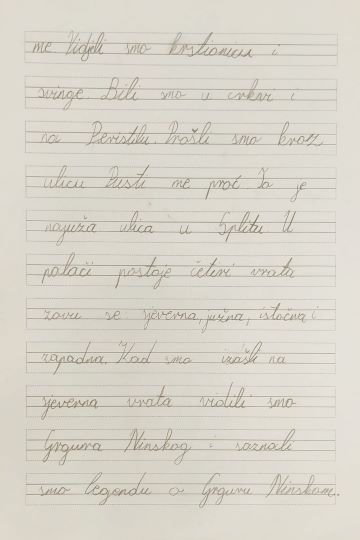 me. Vidjeli smo krstionicu i
svinge. Bili smo u crkvi i
na Peristilu. Prošli smo kroz
ulicu Pusti me proć. To je
najuža ulica u Splitu. U
palači postoje četiri vrata
zovu se sjeverna, južna, istočna i
zapadna. Kad smo izašli na
sjeverna vrata vidili smo
Grgura Ninskog i saznali
smo legendu o Grguru Ninskom.